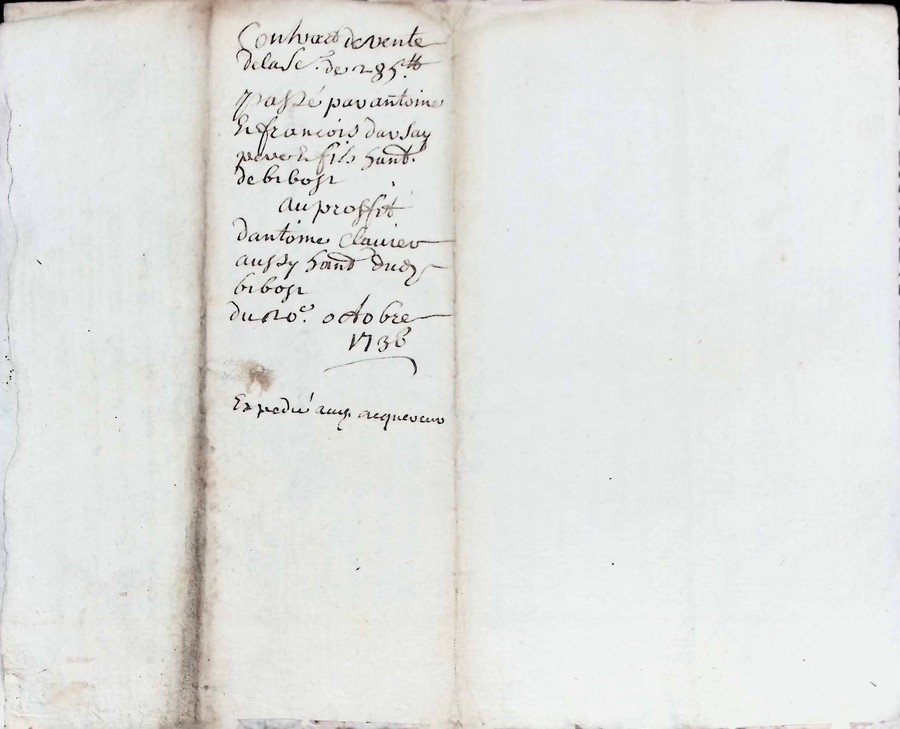 Contract de vente
de la Se. de 285 ₶
passé par antoine
Et francois darsay
pere Et fils hant.
de bibost
au proffit
dantoine Clavier
aussy hant dud
bibost
du 20e. octobre
1736
Expedié aud acquereur